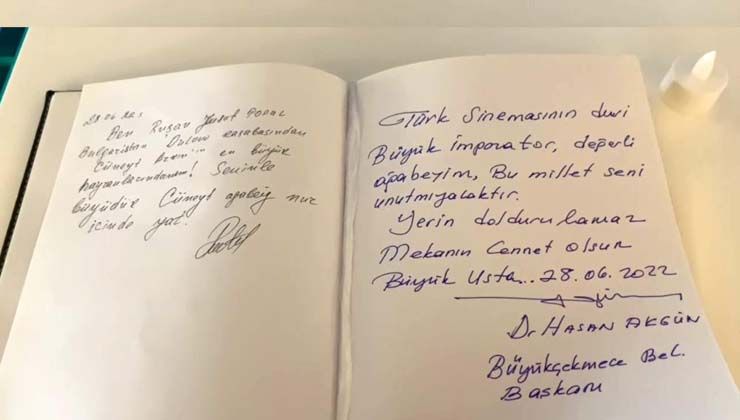 28 06 202
Ben Ruşan Yusuf
Bulgaristan kasabasından
Cüneyt Arkın'ın en büyük
hayranlarındanım! Seninle
büyüdük Cüneyt agabeiy nur
içinde yat.
Türk Sinemasının devi
Büyük imporator, değerli
ağabeyim, Bu millet seni
unutmıyacaktır.
Yerin doldurulamaz
Mekanın Cennet olsun
Büyük Usta... 28.06.2022
Dr HASAN AKGÜN
Büyükçekmece Bel.
Başkanı